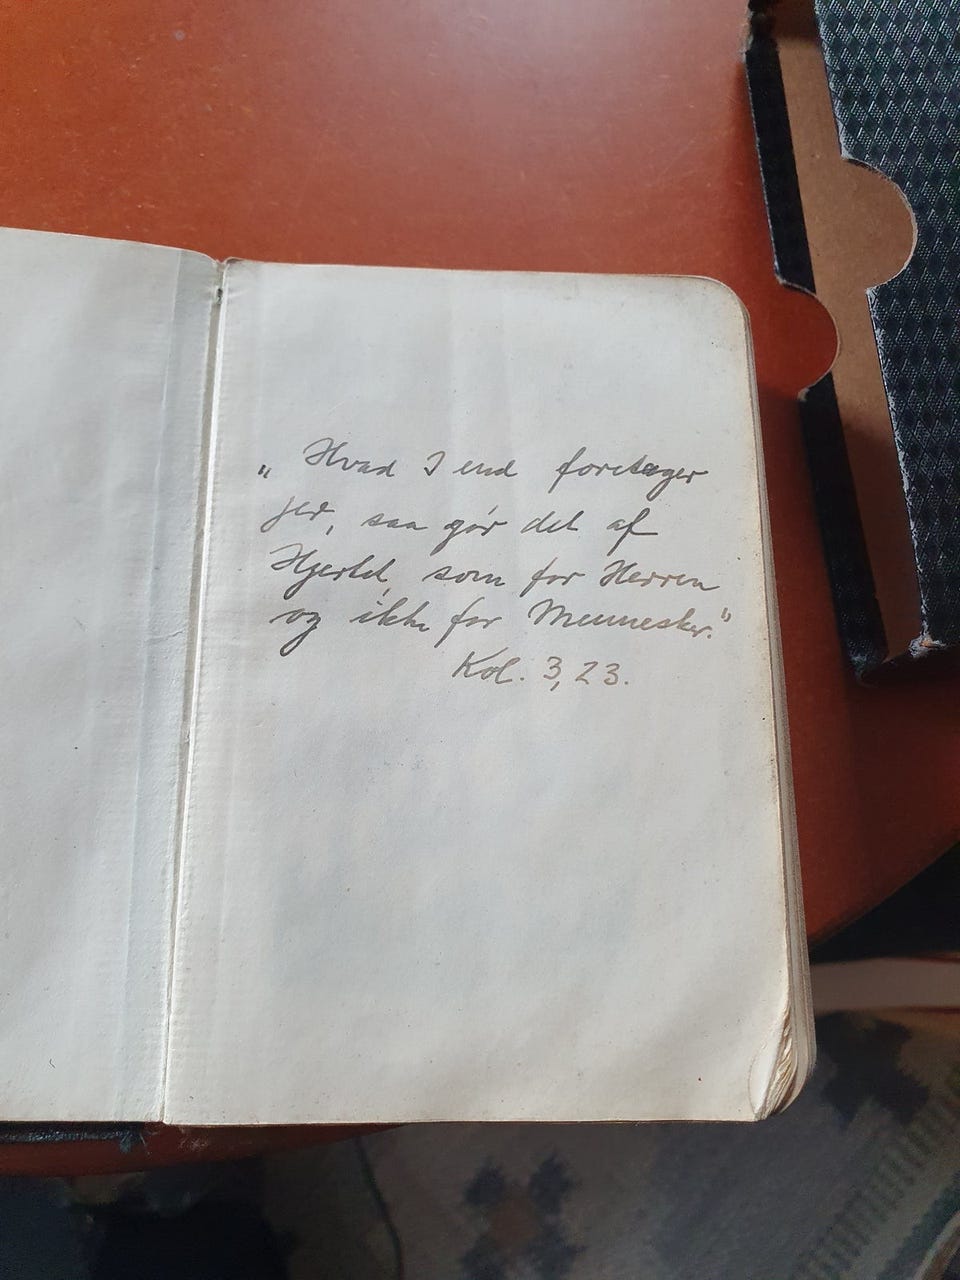 „Hvad I end foretager
jer, saa gør det af
Hjertet, som for Herren
og ikke for Mennesker."
Kol. 3,23.